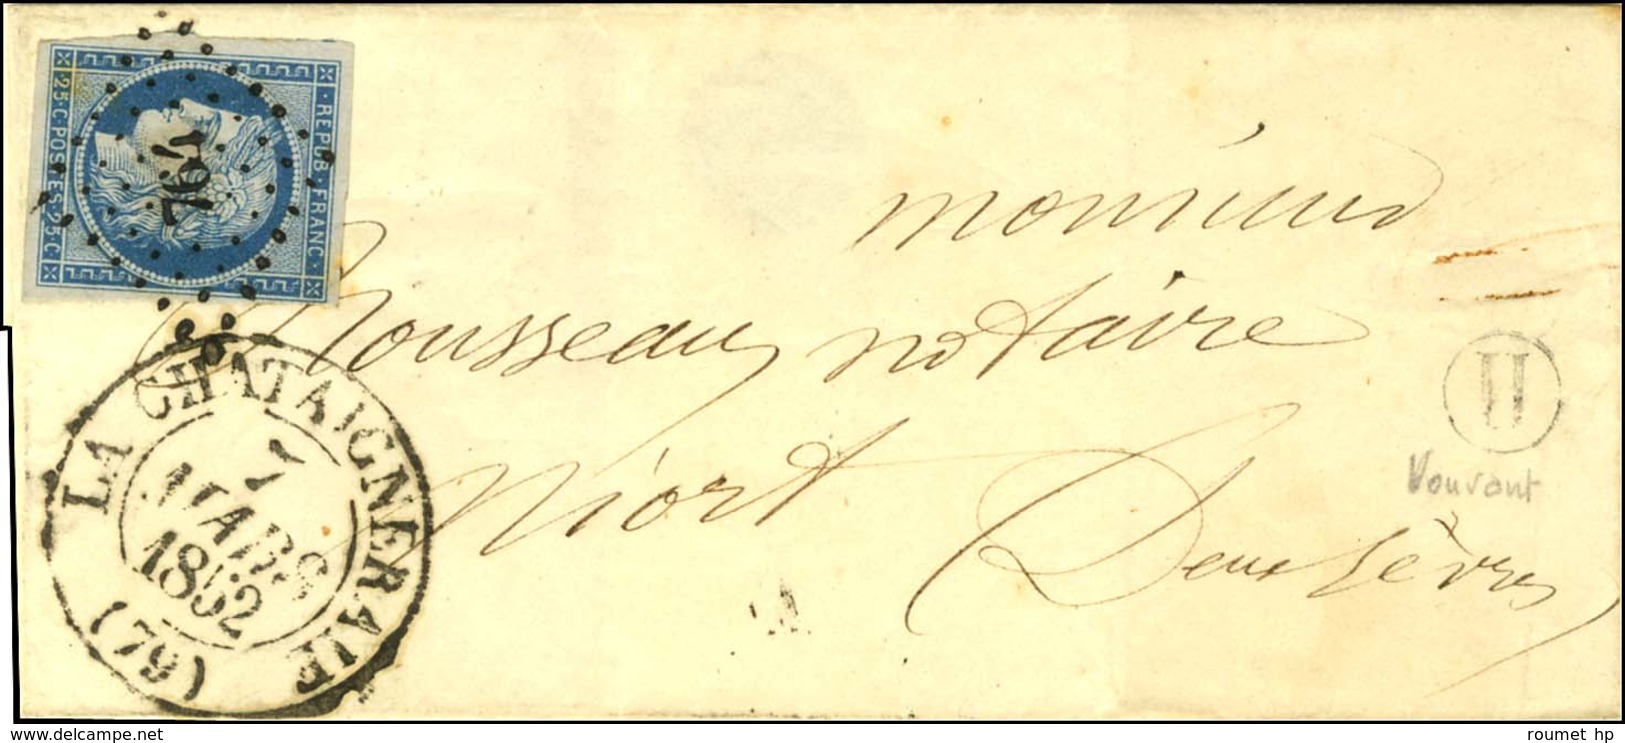 REPUB. FRANC.
25.C.POSTES.25.C.
764
monsieur
Rousseau notaire
niort
Deux Sèvres
H
Vouvant
LA CHATAIGNERAIE
7
MARS
1852
(79)
www.delcampe.net
roumet hp